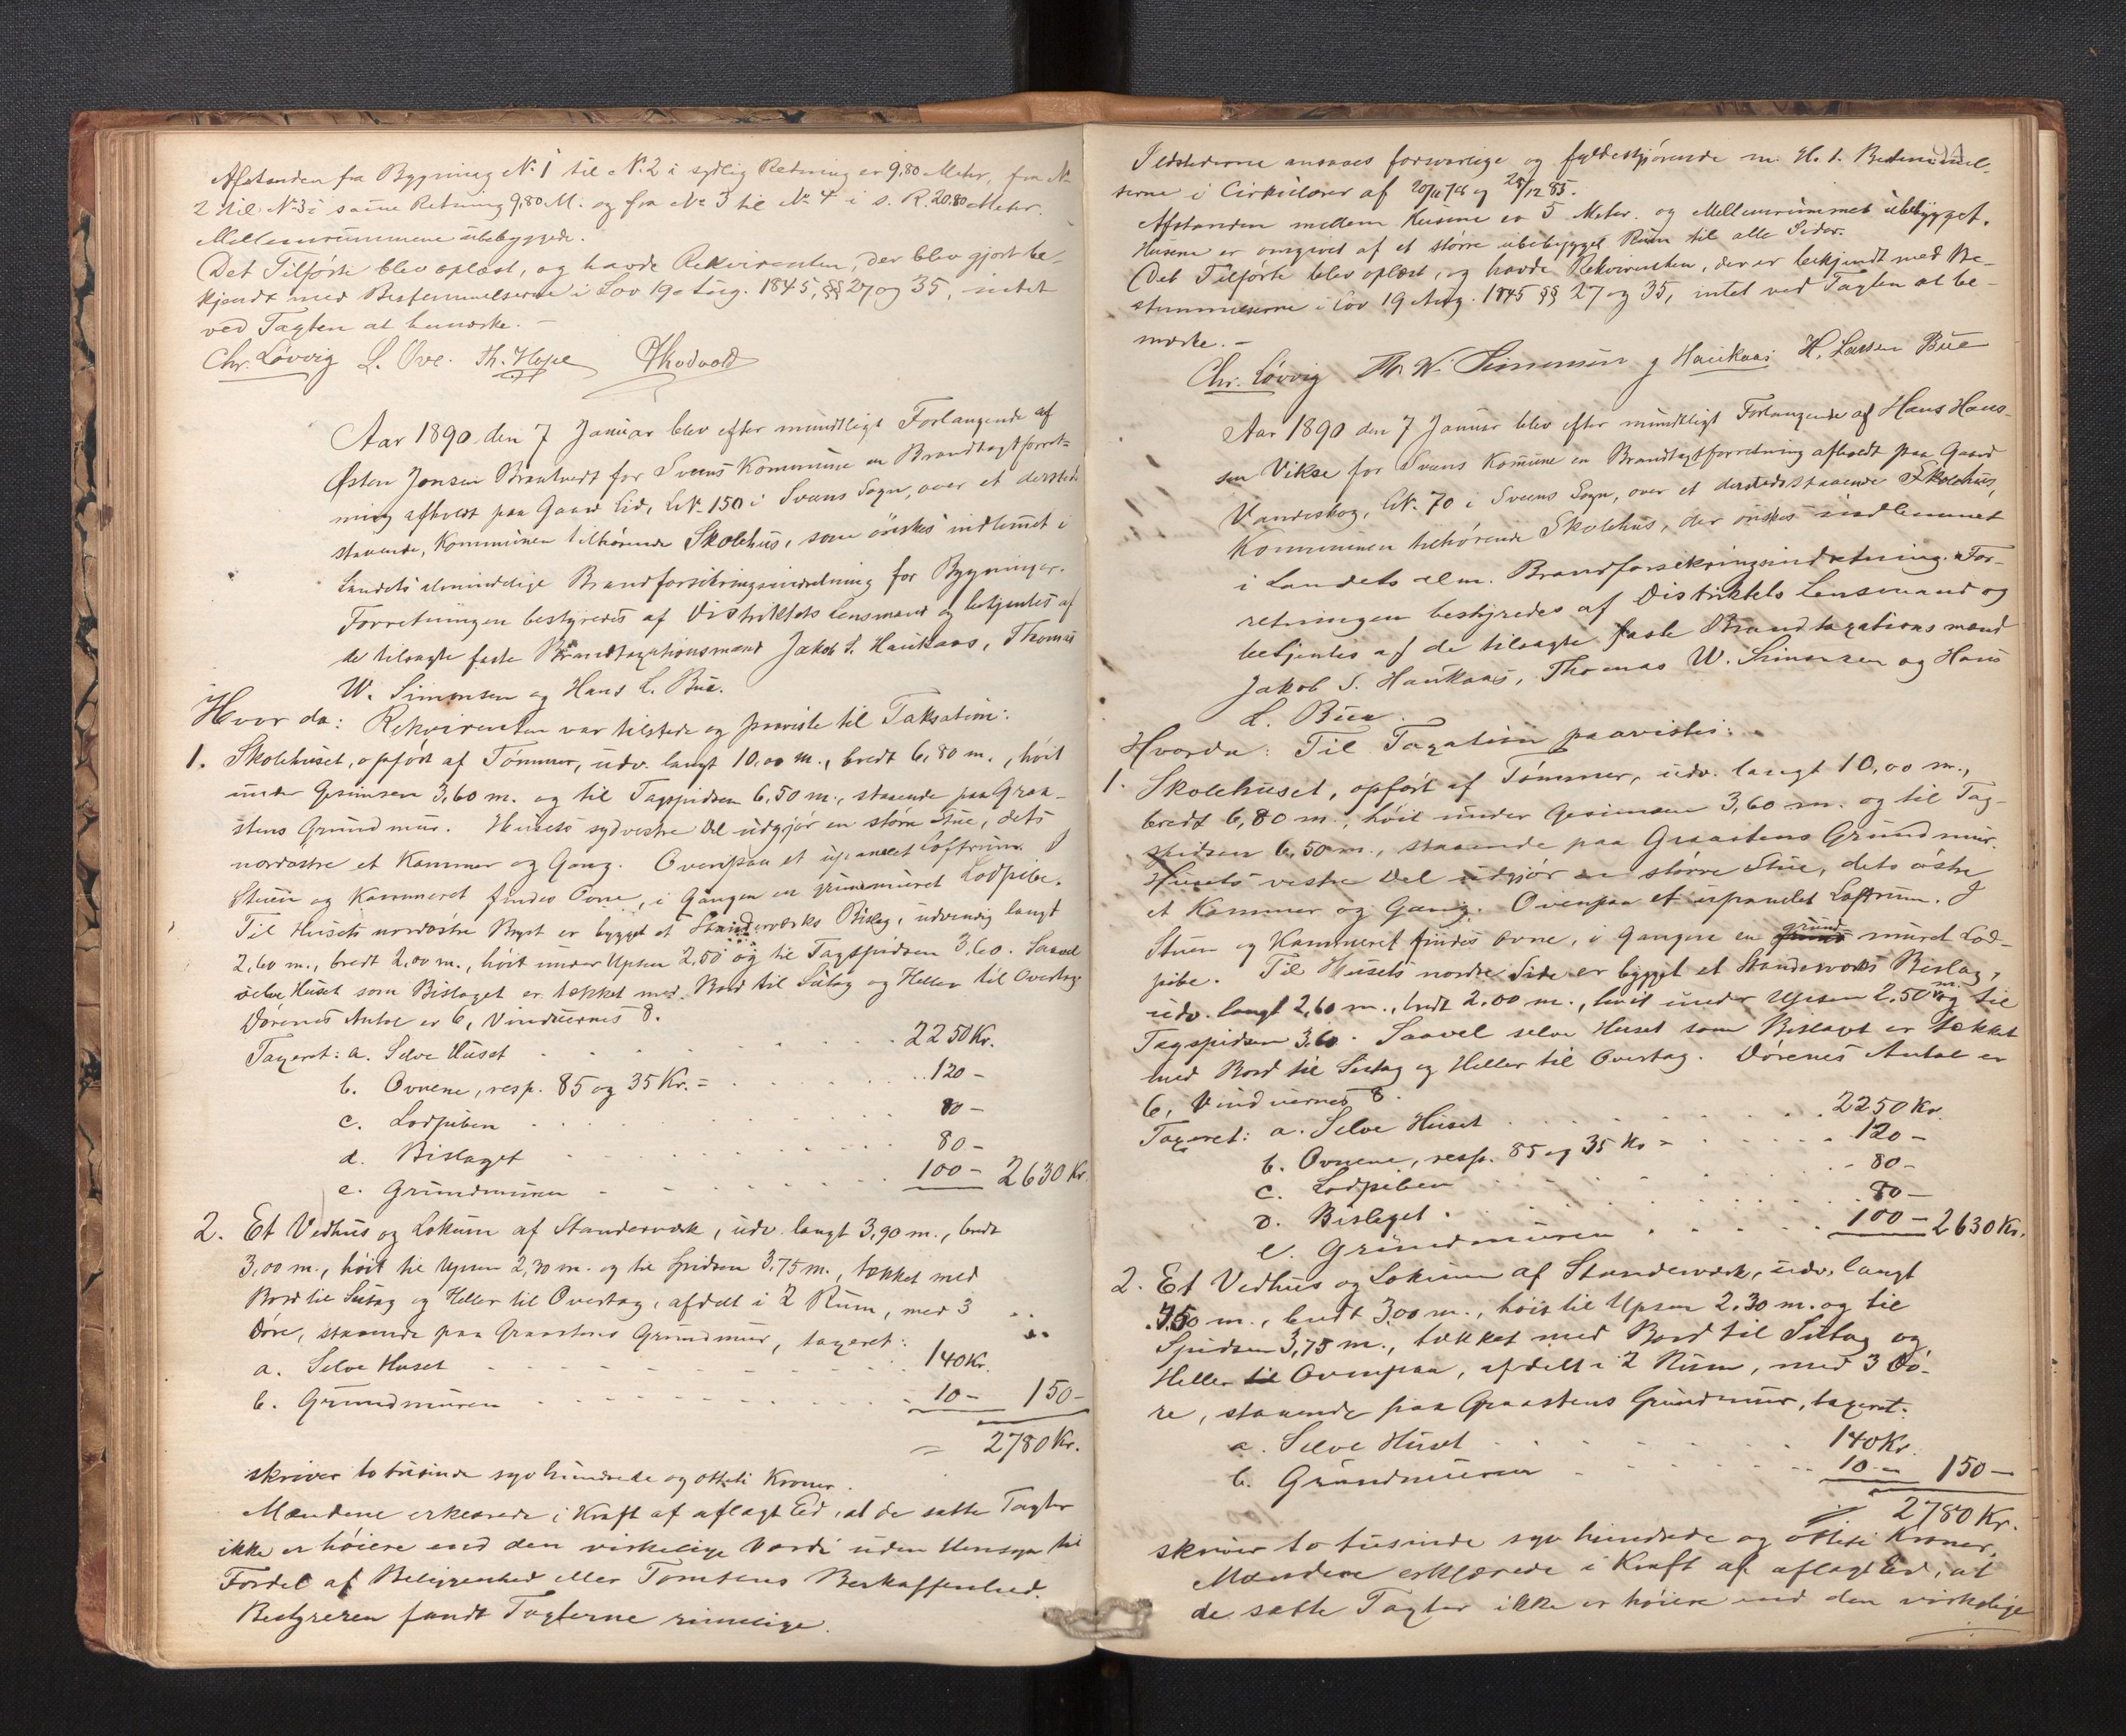 Afstanden fra Bygning N. 1 til N. 2 i sydlig Retning er 9,80 Meter, fra N.
2 til N. 3 i samme Retning 9,80 M. og fra No 3 til No 4 i s. R. 20.80 Meter.
Mellemrummene ubebyggede.
Det Tilførte blev oplæst, og havde Rekvirenten, der blev gjort be-
kjendt med Bestemmelserne i Lov 19. Aug. 1845, §§ 27 og 35, intet
ved Taxten at bemærke. -
Chr. Løvvig L. Ove. Th. Hope
Aar 1890 den 7 Januar blev efter mundtligt Forlangende af
Østen Jensen Brautvedt for Sveens Kommune en Brandtaxtforret-
ning afholdt paa Gaard Lid, L.N. 150 i Sveens Sogn, over et dersteds
staaende, Kommunen tilhørende Skolehus, som ønskes indlemmet i
Landets almindelige Brandforsikringsindretning for Bygninger.
Forretningen bestyredes af Distriktets Lensmand og betjentes af
de tilsagte faste Brandtaxationsmænd Jakob S. Haukaas, Thomas
W. Simonsen og Hans L. Bue.
Hvor da: Rekvirenten var tilstede og paaviste til Taksation:
1. Skolehuset, opført af Tømmer, udv. langt 10,00 m., bredt 6,80 m., høit
under Gesimsen 3,60 m. og til Tagspidsen 6,50 m., staaende paa Graa-
stens Grundmur. Husets sydvestre Del udgjør en større Stue, dets
nordøstre et Kammer og Gang. Ovenpaa et upanelet Loftrum. I
Stuen og Kammeret findes Ovne, i Gangen en grundmuret Lodpibe.
Til Husets nordøstre Bryst er bygget et Standerværks Bislag, udvendig langt
2,60 m., bredt 2,00 m., høit under Upsen 2,50 og til Tagspidsen 3,60. Saavel
selve Huset som Bislaget er tækket med Bord til Sutag og Heller til Overtag.
Dørenes Antal er 6, Vinduernes 8.
Taxeret: a. Selve Huset 2250 Kr.
b. Ovnene, resp. 85 og 35 Kr. = 120 -
c. Lodpiben 80 -
d. Bislaget 80 -
e. Grundmuren 100 - 2630 Kr.
2. Et Vedhus og Lokum af Standerværk, udv. langt 3,90 m., bredt
3,00 m., høit til Upsen 2,30 m. og til Spidsen 3,75 m., tækket med
Bord til Sutag og Heller til Overtag, afdelt i 2 Rum, med 3
Døre, staaende paa Graastens Grundmur, taxeret:
a. Selve Huset 140 Kr.
b. Grundmuren 10 - 150 -
= 2780 Kr.
skriver to tusinde syv hundrede og otteti Kroner.
Mændene erklærede i Kraft af aflagt Ed, at de satte Taxter
ikke er høiere end den virkelige Værdi uden Hensyn til
Fordel af Beliggenhed eller Tomtens Beskaffenhed.
Bestyreren fandt Taxterne rimelige.
94
Ildstederne ansaaes forsvarlige og fyldestgjørende m. H. t. Bestemmel-
serne i Cirkulærer af og 28/12 85.
Afstanden mellem Husene er 5 Meter og Mellemrummet ubebygget.
Husene er omgivet af et større ubebygget Rum til alle Sider.
Det Tilførte blev oplæst, og havde Rekvirenten, der er bekjendt med Be-
stemmelserne i Lov 19 Aug. 1845 §§ 27 og 35, intet ved Taxten at be-
mærke. -
Chr. Løvvig Th. W. Simonsen J Haukaas H. Larsen Bue
Aar 1890 den 7 Januar blev efter mundtligt Forlangende af Hans Hans-
sen Vikse for Sveens Komune en Brandtaxtforretning afholdt paa Gaard
Vandeskog, L.N. 70 i Sveens Sogn, over et derstedsstaaende Skolehus,
Kommunen tilhørende Skolehus, der ønskes indlemmet
i Landets alm. Brandforsikringsindretning. For-
retningen bestyredes af Distriktets Lensmand og
betjentes af de tilsagte faste Brandtaxationsmænd
Jakob S. Haukaas, Thomas W. Simonsen og Hans
L. Bue.
Hvorda: Til Taxation paavistes:
1. Skolehuset, opført af Tømmer, udv. langt 10,00 m.,
bredt 6,80 m., høit under Gesimsen 3,60 m. og til Tag-
spidsen 6,50 m., staaende paa Graastens Grundmur.
Husets vestre Del udgjør en større Stue, dets østre
et Kammer og Gang. Ovenpaa et upanelet Loftrum. I
Stuen og Kammeret findes Ovne, i Gangen en grund muret Lod-
pibe. Til Husets nordre Side er bygget et Standerværks Bislag,
udv. langt 2,60 m., bredt 2,00 m., høit under Upsen 2,50 m. og til
Tagspidsen 3,60. Saavel selve Huset som Bislaget er tækket
med Bord til Sutag og Heller til Overtag. Dørenes Antal er
6, Vinduernes 8.
Taxeret: a. Selve Huset 2250 Kr.
b. Ovnene, resp. 85 og 35 Kr = 120 -
c. Lodpiben 80 -
d. Bislaget 80 -
e. Grundmuren 100 - 2630 Kr.
2. Et Vedhus og Lokum af Standerværk, udv. langt
m., bredt 3,00 m., høit til Upsen 2,30 m. og til
Spidsen 3,75 m., tækket med Bord til Sutag og
Heller til Ovenpaa, afdelt i 2 Rum, med 3 Dø-
re, staaende paa Graastens Grundmur, taxeret:
a. Selve Huset 140 Kr.
b. Grundmuren 10 - 150 -
2780 Kr.
skriver to tusinde syv hundrede og otteti Kroner.
Mændene erklærede i Kraft af aflagt Ed, at
de satte Taxter ikke er høiere end den virkelige